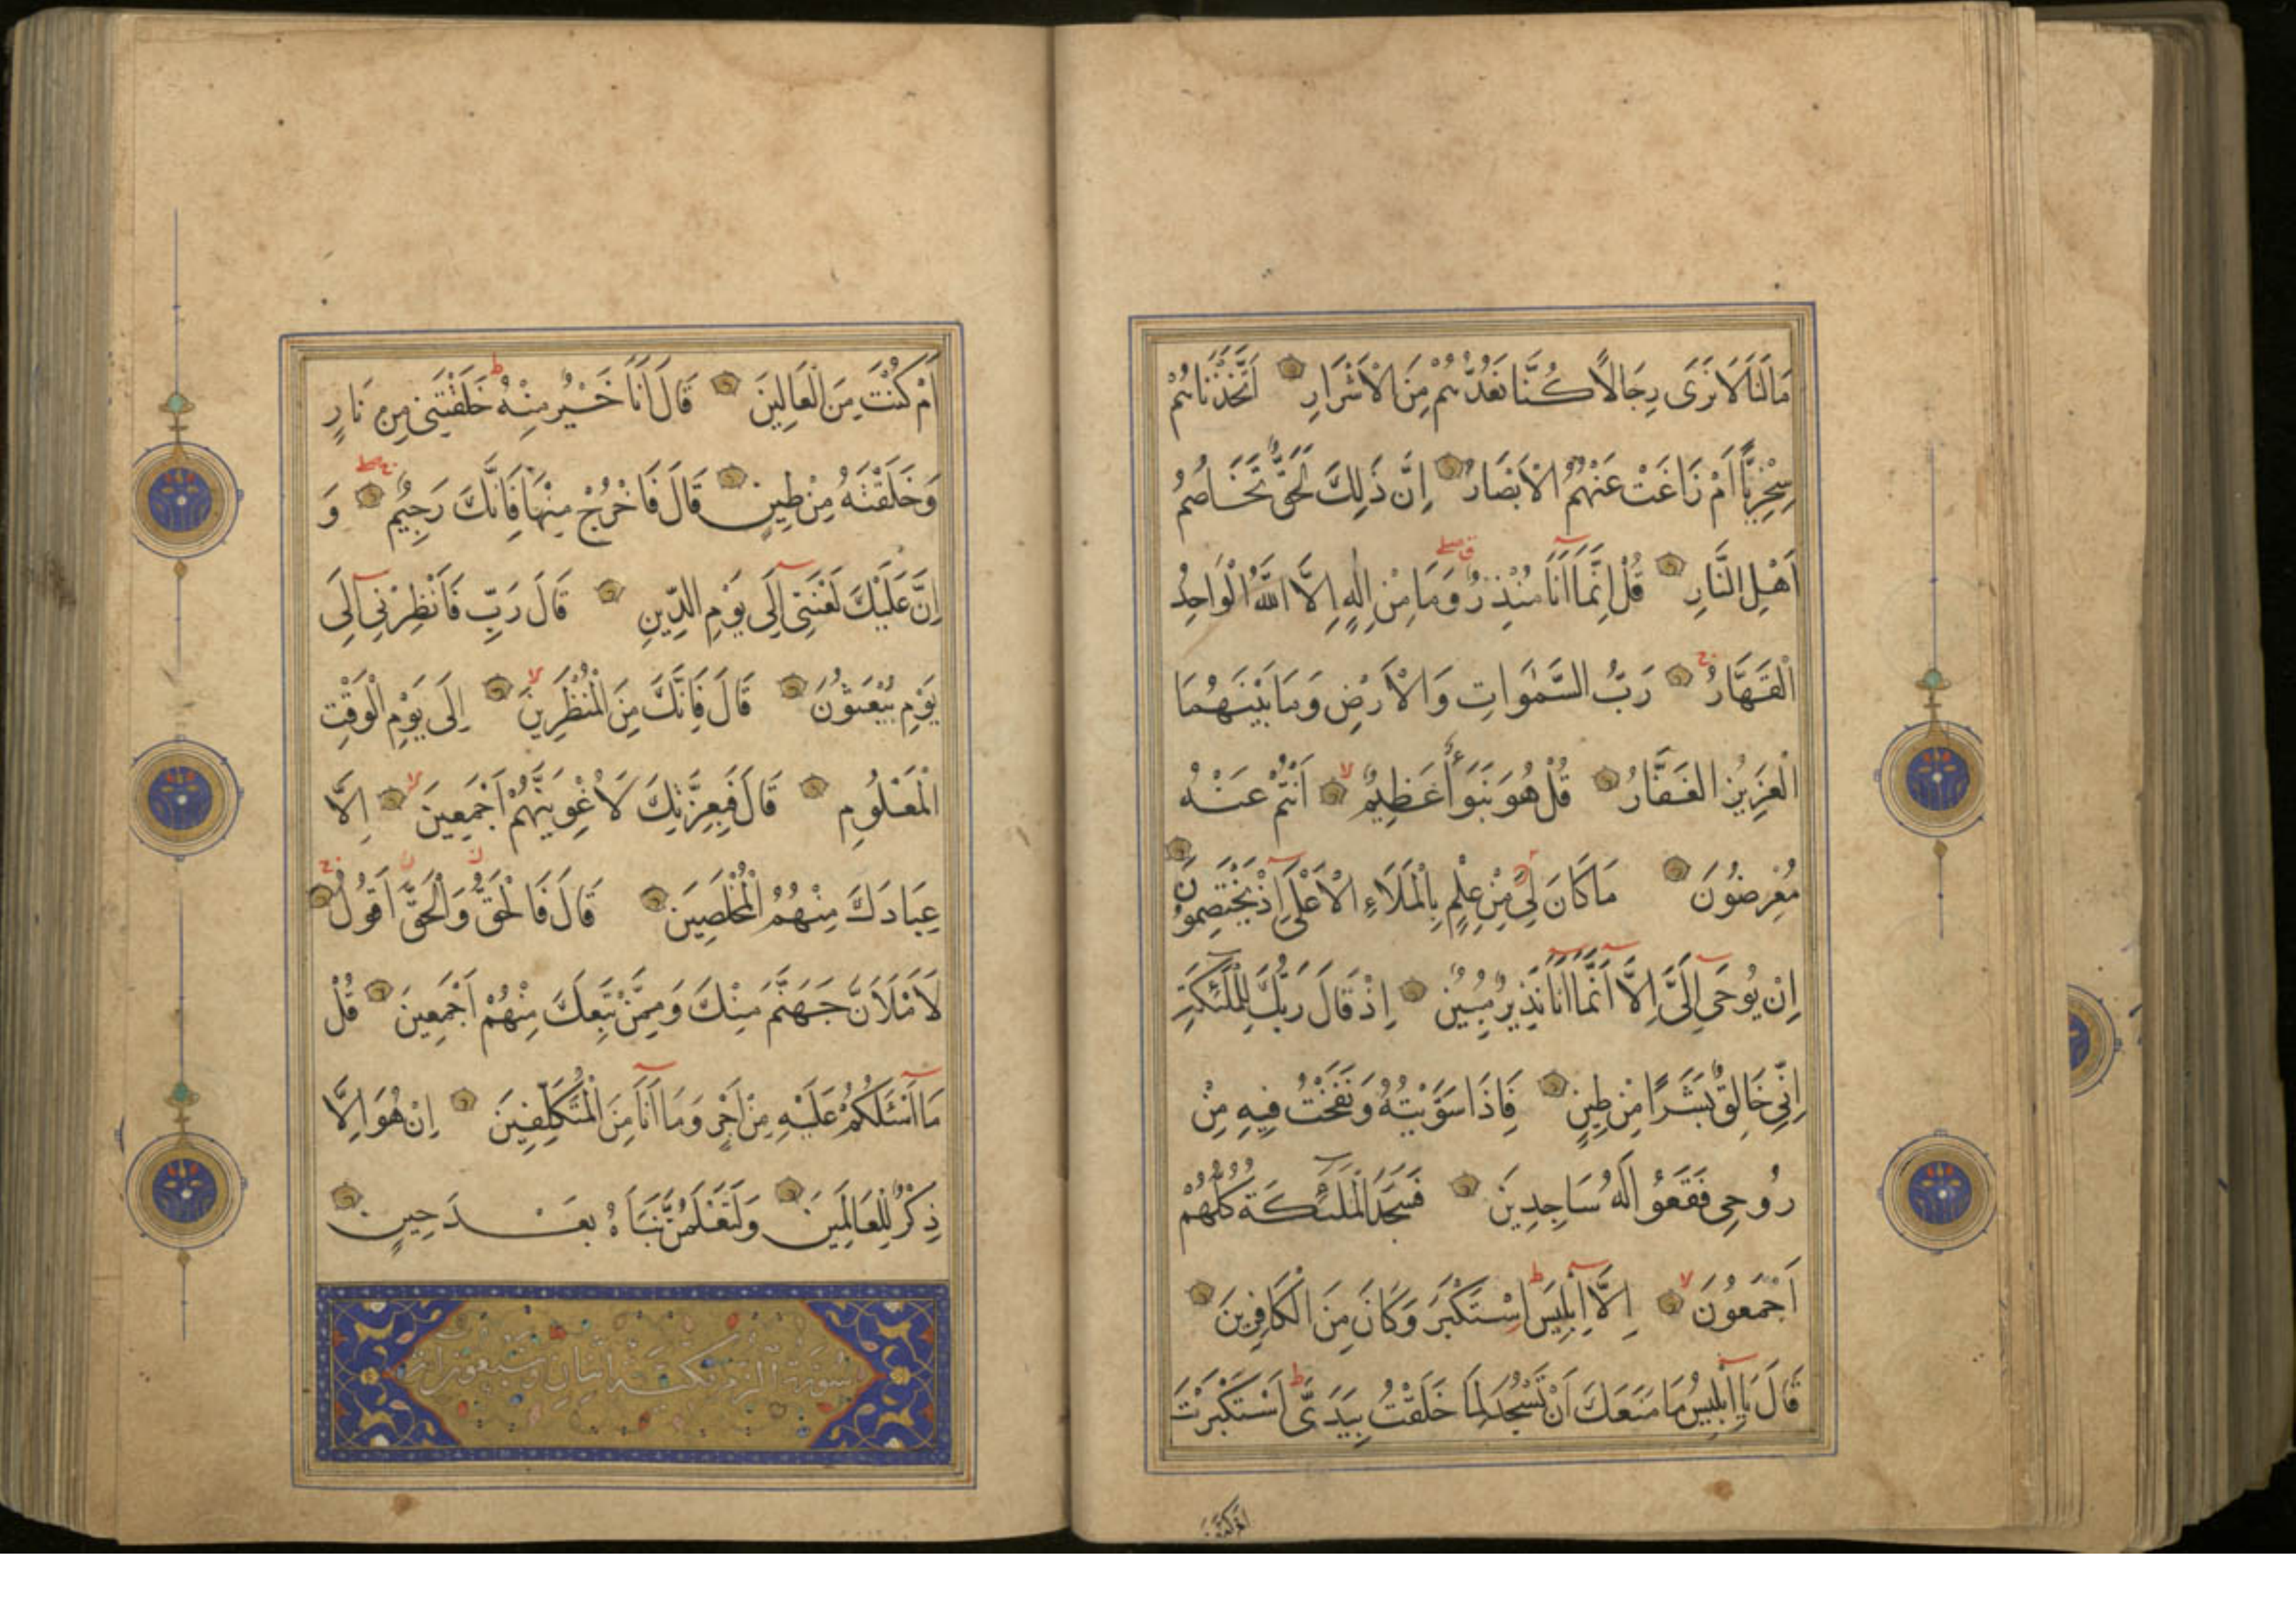 مَالَنَا لَا نَرَى رِجَالًا كُنَّا نَعُدُّهُمْ مِنَ الْأَشْرَارِ اَتَّخَذْنَاهُمْ
سِخْرِيًّا اَمْ زَاغَتْ عَنْهُمُ الْاَبْصَارُ اِنَّ ذَلِكَ لَحَقٌّ تَخَاصُمُ
اَهْلِ النَّارِ قُلْ اِنَّمَا اَنَا مُنْذِرٌ وَمَا مِنْ اِلٰهٍ اِلَّا اللّٰهُ الْوَاحِدُ
الْقَهَّارُ رَبُّ السَّمٰوَاتِ وَالْاَرْضِ وَمَا بَيْنَهُمَا
الْعَزِيْزُ الْغَفَّارُ قُلْ هُوَ نَبَؤٌا عَظِيمٌ اَنْتُمْ عَنْهُ
مُعْرِضُونَ مَا كَانَ لِيَ مِنْ عِلْمٍ بِالْمَلَاءِ الْاَعْلَى اِذْ يَخْتَصِمُونَ
اِنْ يُوحَى اِلَيَّ اِلَّا اَنَّمَا اَنَا نَذِيرٌ مُبِينٌ اِذْ قَالَ رَبُّكَ لِلْمَلٰئِكَةِ
اِنِّي خَالِقٌ بَشَرًا مِنْ طِينٍ فَاِذَا سَوَّيْتُهُ وَنَفَخْتُ فِيهِ مِنْ
رُوحِي فَقَعُوْا لَهُ سَاجِدِينَ فَسَجَدَ الْمَلٰئِكَةُ كُلُّهُمْ
اَجْمَعُونَ اِلَّا اِبْلِيسَ اِسْتَكْبَرَ وَكَانَ مِنَ الْكَافِرِينَ
قَالَ يَا اِبْلِيسُ مَا مَنَعَكَ اَنْ تَسْجُدَ لِمَا خَلَقْتُ بِيَدَيَّ اَسْتَكْبَرْتَ
ام كنت
اَمْ كُنْتَ مِنَ الْعَالِينَ قَالَ اَنَا خَيْرٌ مِنْهُ خَلَقْتَنِي مِنْ نَارٍ
وَخَلَقْتَهُ مِنْ طِينٍ قَالَ فَاخْرُجْ مِنْهَا فَاِنَّكَ رَجِيمٌ وَ
اِنَّ عَلَيْكَ لَعْنَتِي اِلَى يَوْمِ الدِّينِ قَالَ رَبِّ فَاَنْظِرْنِي اِلَى
يَوْمِ يُبْعَثُونَ قَالَ فَاِنَّكَ مِنَ الْمُنْظَرِينَ اِلَى يَوْمِ الْوَقْتِ
الْمَعْلُومِ قَالَ فَبِعِزَّتِكَ لَاُغْوِيَنَّهُمْ اَجْمَعِينَ اِلَّا
عِبَادَكَ مِنْهُمُ الْمُخْلَصِينَ قَالَ فَالْحَقُّ وَالْحَقَّ اَقُولُ
لَاَمْلَاَنَّ جَهَنَّمَ مِنْكَ وَمِمَّنْ تَبِعَكَ مِنْهُمْ اَجْمَعِينَ قُلْ
مَا اَسْئَلُكُمْ عَلَيْهِ مِنْ اَجْرٍ وَمَا اَنَا مِنَ الْمُتَكَلِّفِينَ اِنْ هُوَ اِلَّا
ذِكْرٌ لِلْعَالَمِينَ وَلَتَعْلَمُنَّ نَبَاَهُ بَعْدَ حِينٍ
سورة الزمر مكية ثمان وسبعون